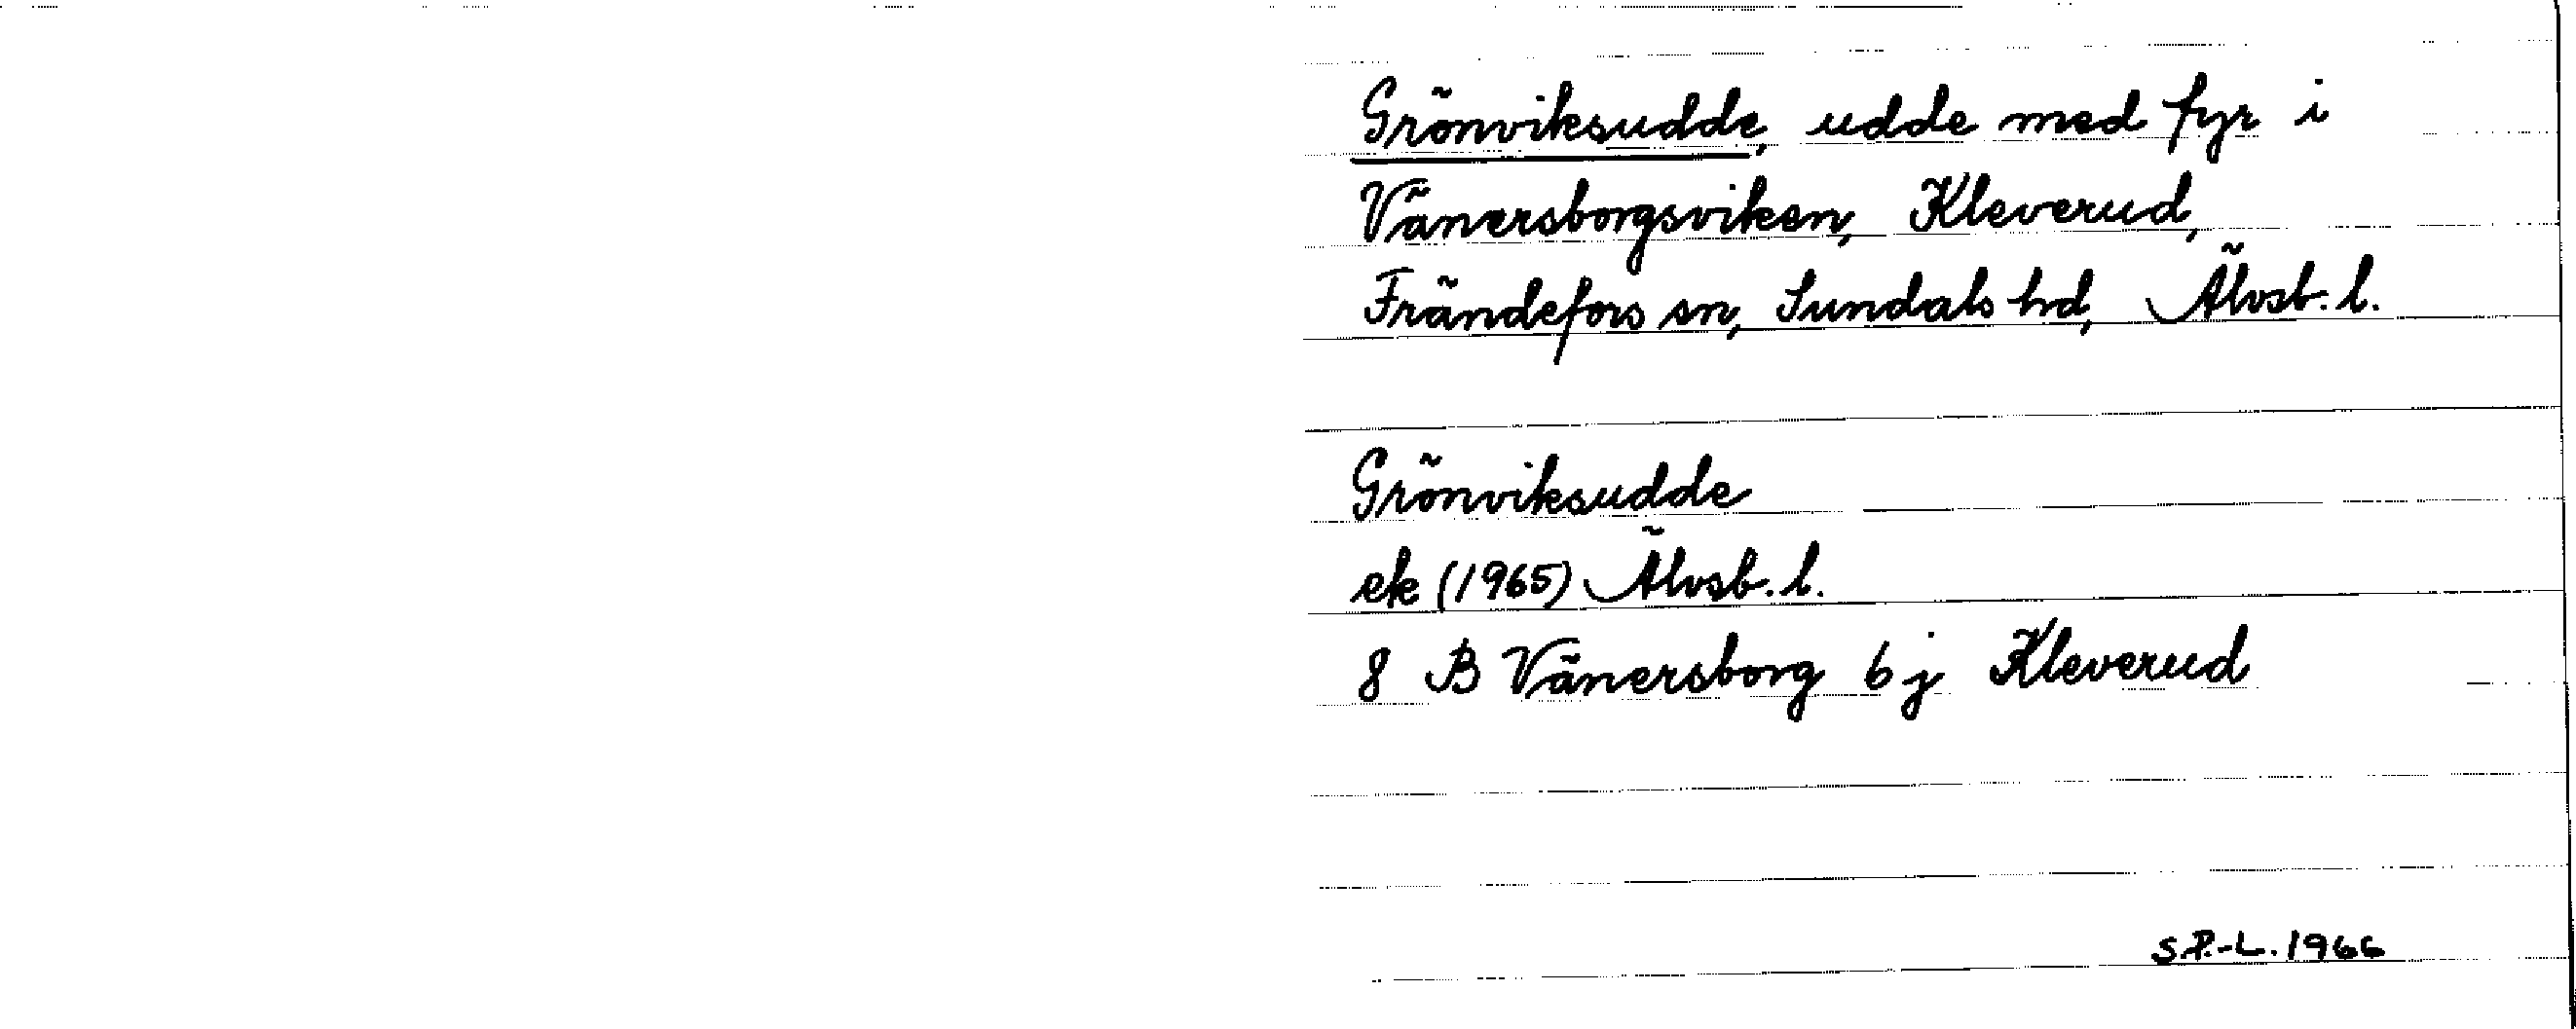 Grönviksudde, udde med fyr i
Vänersborgsviken, Kleverud,
Frändefors sn, Sundals hd, Älvsb. l.
Grönviksudde
ek (1965) Älvsb. l.
8 B Vänersborg 6 j Kleverud
S.P.-L. 1966